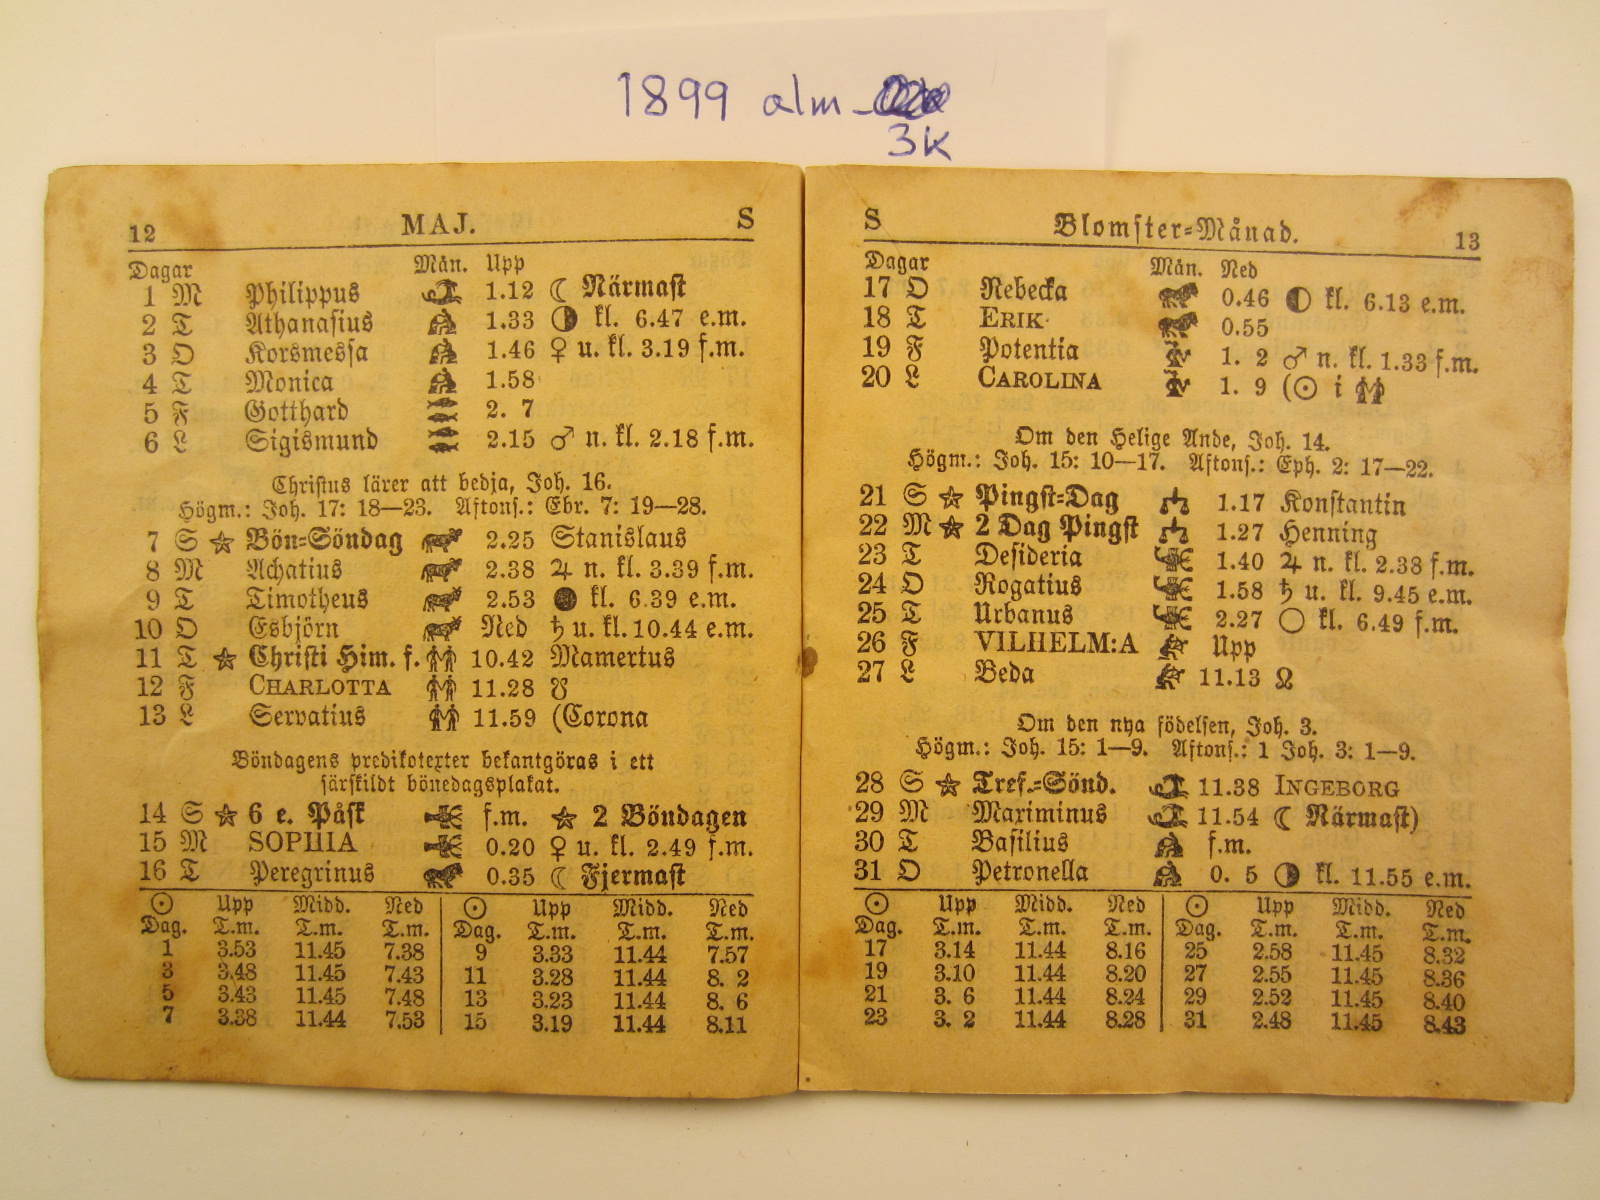 1899 alm
3K
12 MAJ. S
Dagar Mån. Upp
1 M Philippus 1.12 ☾ Närmast
2 T Athanasius 1.33 ◑ kl. 6.47 e.m.
3 O Korsmessa 1.46 ♀ u. kl. 3.19 f.m.
4 T Monica 1.58
5 F Gotthard 2. 7
6 L Sigismund 2.15 ♂ n. kl. 2.18 f.m.
Christus lärer att bedja, Joh. 16.
Högm.: Joh. 17: 18—23. Aftons.: Ebr. 7: 19—28.
7 S ☆ Bön=Söndag 2.25 Stanislaus
8 M Achatius 2.38 ♃ n. kl. 3.39 f.m.
9 T Timotheus 2.53 ● kl. 6.39 e.m.
10 O Esbjörn Ned ♄ u. kl. 10.44 e.m.
11 T ☆ Christi Him. f. 10.42 Mamertus
12 F CHARLOTTA 11.28 ☋
13 L Servatius 11.59 (Corona
Böndagens predikotexter bekantgöras i ett
särskildt bönedagsplakat.
14 S ☆ 6 e. Påsk f.m. ☆ 2 Böndagen
15 M SOPHIA 0.20 ♀ u. kl. 2.49 f.m.
16 T Peregrinus 0.35 ☾ Fjermast
☉ Upp Midd. Ned ☉ Upp Midd. Ned
Dag. T.m. T.m. T.m. Dag. T.m. T.m. T.m.
1 3.53 11.45 7.38 9 3.33 11.44 7.57
3 3.48 11.45 7.43 11 3.28 11.44 8. 2
5 3.43 11.45 7.48 13 3.23 11.44 8. 6
7 3.38 11.44 7.53 15 3.19 11.44 8.11
S Blomster=Månad. 13
Dagar Mån. Ned
17 O Rebecka 0.46 ◐ kl. 6.13 e.m.
18 T ERIK 0.55
19 F Potentia 1. 2 ♂ n. kl. 1.33 f.m.
20 L CAROLINA 1. 9 (☉ i ♊
Om den Helige Ande, Joh. 14.
Högm.: Joh. 15: 10—17. Aftons.: Eph. 2: 17—22.
21 S ☆ Pingst=Dag 1.17 Konstantin
22 M ☆ 2 Dag Pingst 1.27 Henning
23 T Desideria 1.40 ♃ n. kl. 2.38 f.m.
24 O Rogatius 1.58 ♄ u. kl. 9.45 e.m.
25 T Urbanus 2.27 ○ kl. 6.49 f.m.
26 F VILHELM:A Upp
27 L Beda 11.13 ☊
Om den nya födelsen, Joh. 3.
Högm.: Joh. 15: 1—9. Aftons.: 1 Joh. 3: 1—9.
28 S ☆ Tref.=Sönd. 11.38 INGEBORG
29 M Maximinus 11.54 ☾ Närmast)
30 T Basilius f.m.
31 O Petronella 0. 5 ◑ kl. 11.55 e.m.
☉ Upp Midd. Ned ☉ Upp Midd. Ned
Dag. T.m. T.m. T.m. Dag. T.m. T.m. T.m.
17 3.14 11.44 8.16 25 2.58 11.45 8.32
19 3.10 11.44 8.20 27 2.55 11.45 8.36
21 3. 6 11.44 8.24 29 2.52 11.45 8.40
23 3. 2 11.44 8.28 31 2.48 11.45 8.43